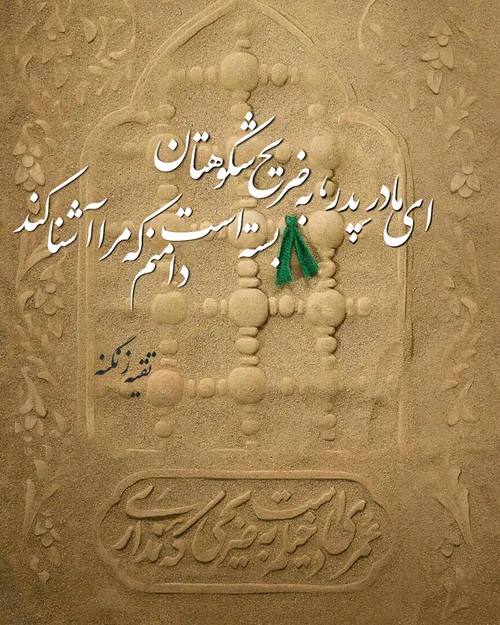 ای مادرِ پدر، به ضریح شکوهتان
بسته است دامنم که مرا آشنا کند
زنگنه
عمری است دخیلم به ضریحی که نداری